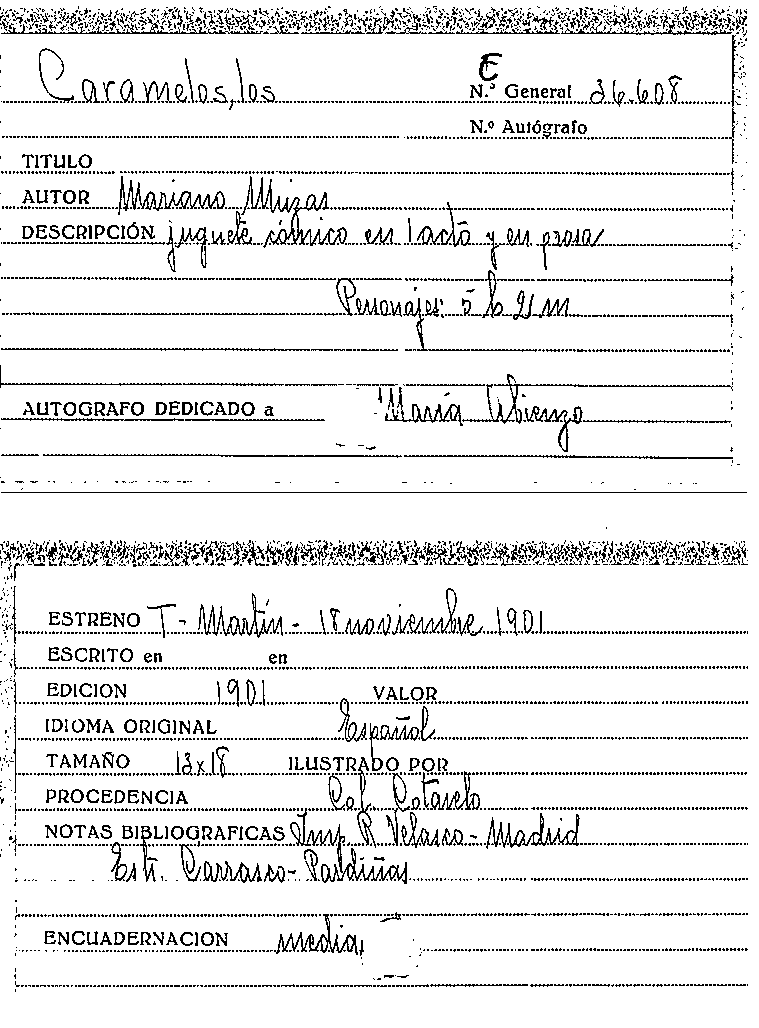 Caramelos, los
E
N.º General 26.608
N.º Autógrafo
TITULO
AUTOR Mariano Muzas
DESCRIPCIÓN juguete cómico en 1 acto y en prosa
Personajes: 5 h 2 m
AUTOGRAFO DEDICADO a María Abienzo
ESTRENO T- Martín - 18 noviembre 1901
ESCRITO en en
EDICION 1901 VALOR
IDIOMA ORIGINAL Español
TAMAÑO 13x18 ILUSTRADO POR
PROCEDENCIA Col. Cotarelo
NOTAS BIBLIOGRAFICAS Imp. R. Velasco - Madrid
Estr. Carrasco-Pardiñas
ENCUADERNACION media